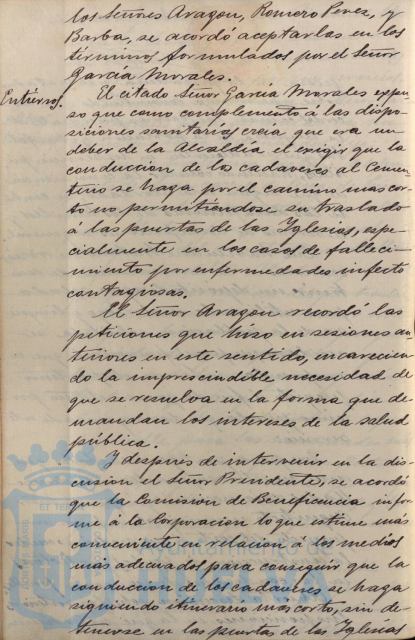 los Señores Aragon, Romero Perez, y
Barba, se acordó aceptarlas en los
términos formulados por el Señor
García Morales.
Entierros.
El citado Señor García Morales expu-
so que como complemento á las dispo-
siciones sanitarias creia que era un
deber de la Alcaldía el exigir que la
conduccion de los cadaveres al Cemen-
terio se haga por el camino mas cor-
to no permitiéndose su traslado
á las puertas de las Iglesias, espe-
cialmente en los casos de falleci-
miento por enfermedades infecto
contagiosas.
El Señor Aragon recordó las
peticiones que hizo en sesiones an-
teriores en este sentido, encarecien-
do la imprescindible necesidad de
que se resuelva en la forma que de-
mandan los intereses de la salud
pública.
Y después de intervenir en la dis-
cusion el Señor Presidente, se acordó
que la Comision de Beneficencia infor-
me á la Corporacion lo que estime más
conveniente en relacion á los medios
más adecuados para conseguir que la
conduccion de los cadaveres se haga
siguiendo itinerario mas corto, sin de-
tenerse en las puertas de las Iglesias